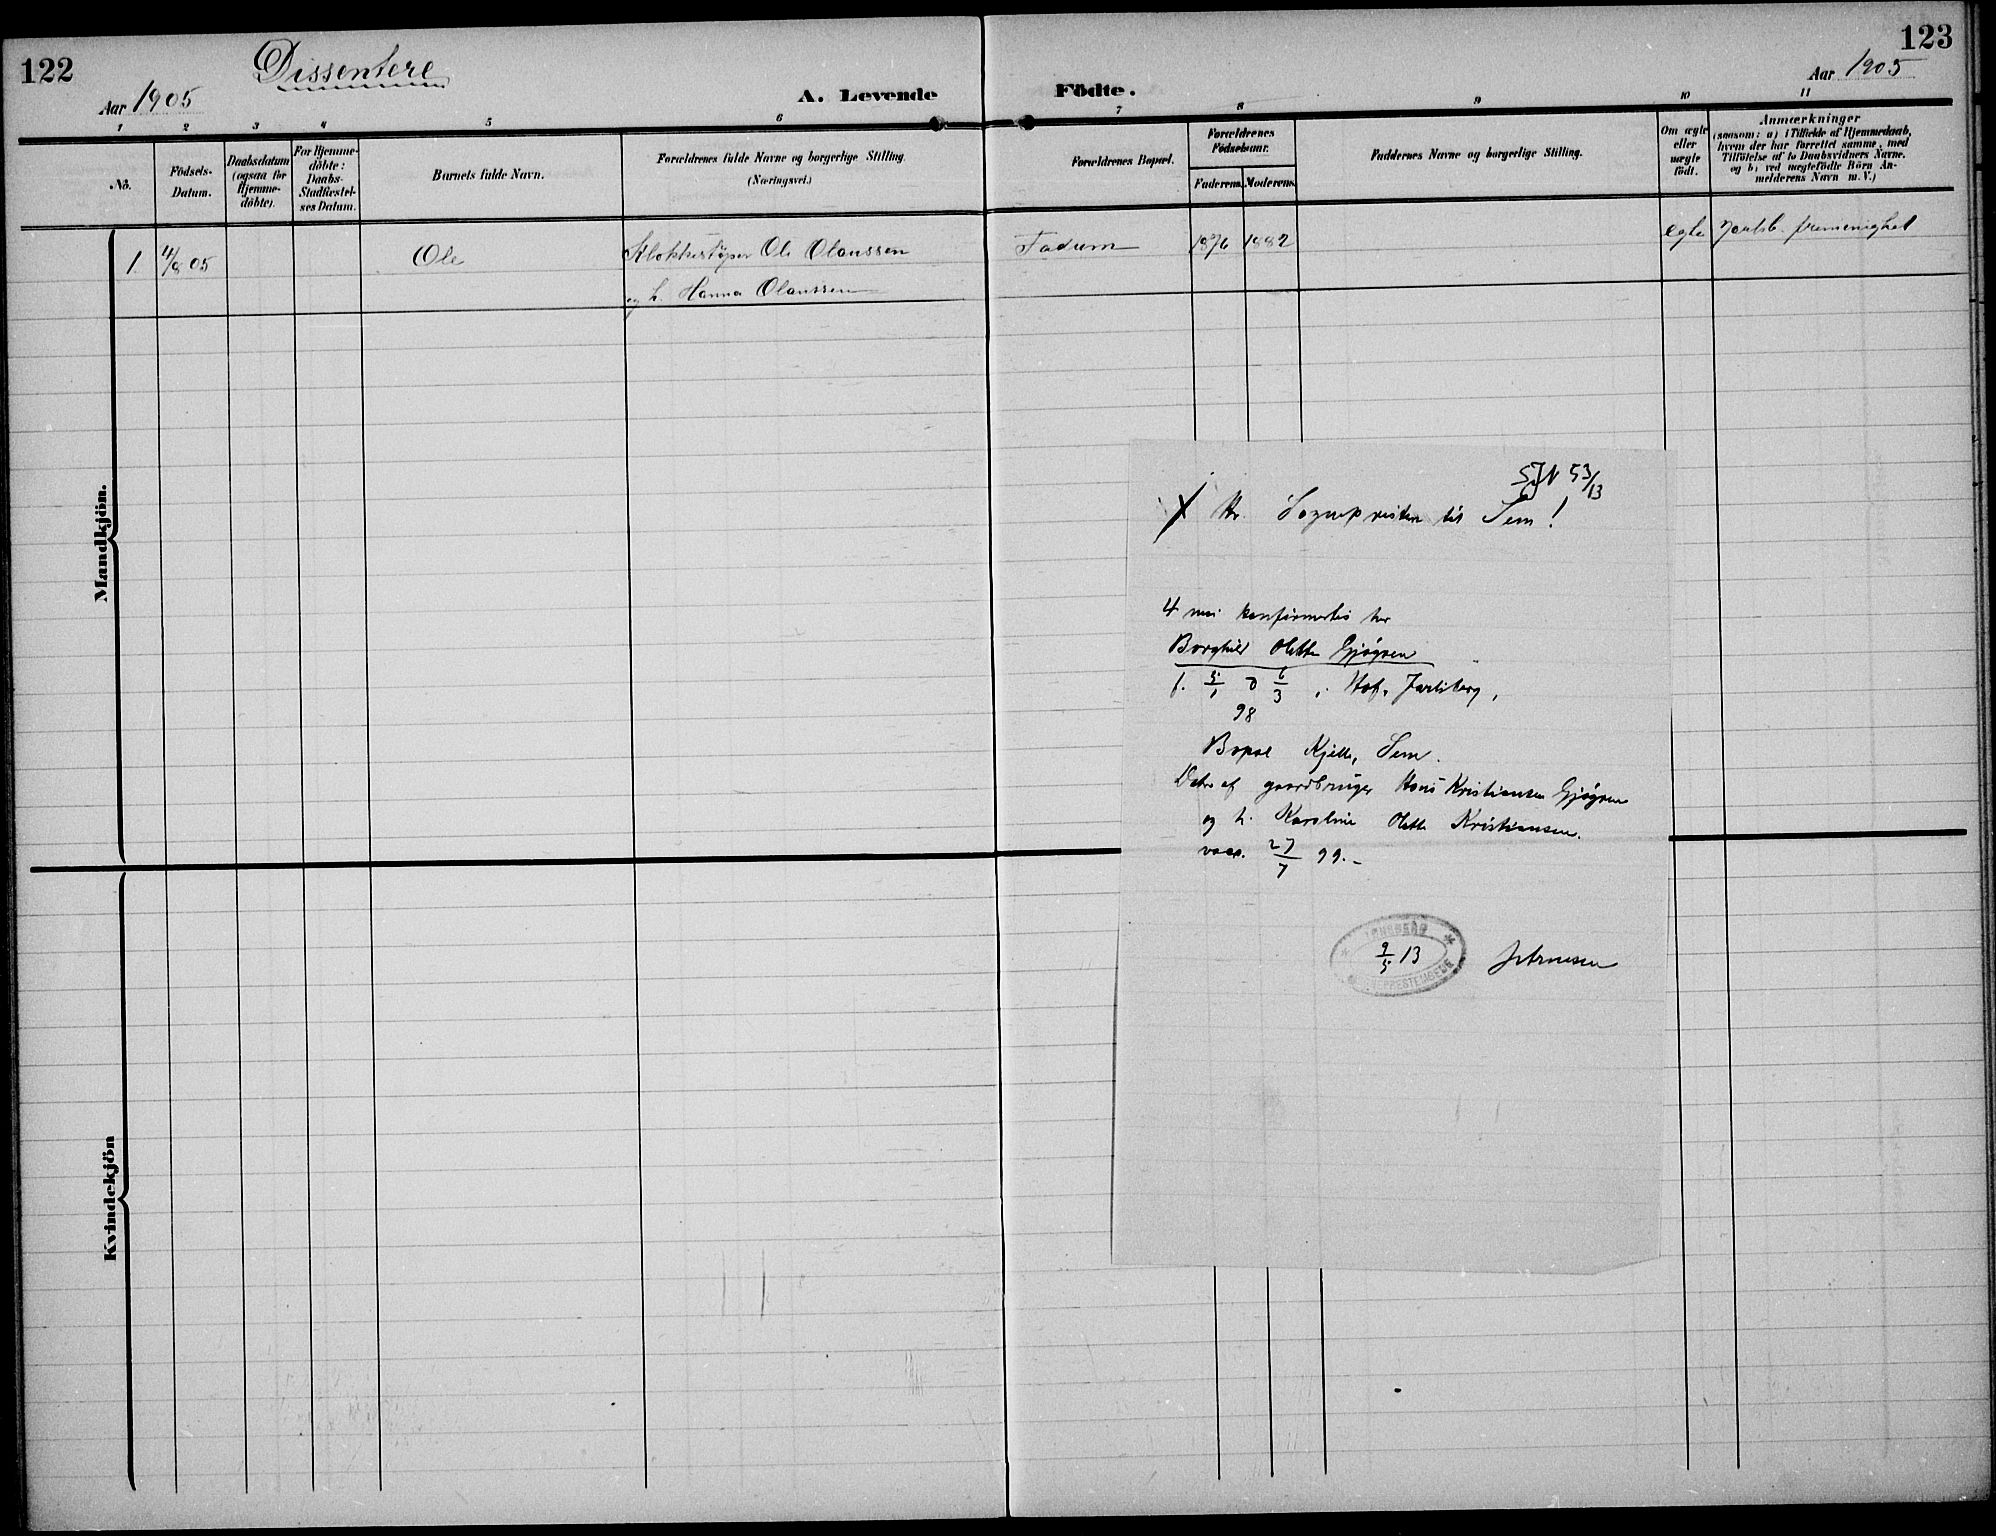 122
Dissentere
Aar 1905
A. Levende
Födte.
123
Aar 1905
1 2 3 4 5 6 7 8 9 10 11
No.
Födsels-
Datum.
Daabsdatum
(ogsaa for
Hjemme-
döbte).
For Hjemme-
döbte:
Daabs-
Stadfæstel-
ses Datum.
Barnets fulde Navn.
Forældrenes fulde Navne og borgerlige Stilling.
(Næringsvei.)
Forældrenes Bopæl.
Forældrenes
Födselsaar.
Faderens. Moderens.
Faddernes Navne og borgerlige Stilling.
Om ægte
eller
uægte
födt.
Anmærkninger
(saasom: a) i Tilfælde af Hjemmedaab,
hvem der har forrettet samme, med
Tilföielse af to Daabsvidners Navne.
og b) ved uægtefödte Börn An-
melderens Navn m. V.)
Mandkjön.
1. 4/8 05 Ole Klokkestøper Ole Olaussen Fadum 1876 1882 egte menighet
og h. Hanna Olaussen
SJN 53/13
Hr. Sognepresten til Sem!
4 mai konfirmertes her
Borghild Olette Gjøgsen
f. 5/1 D 6/3, Hof, Jarlsberg,
98
Bopæl Kjelle, Sem.
Datter af gaardbruger Hans Kristiansen Gjøgsen
og h. Karoline Olette Kristiansen.
vacc. 27/7 99.-
TØNSBERG
SOGNEPRESTEMBEDE
9/5 13
Kvindekjön